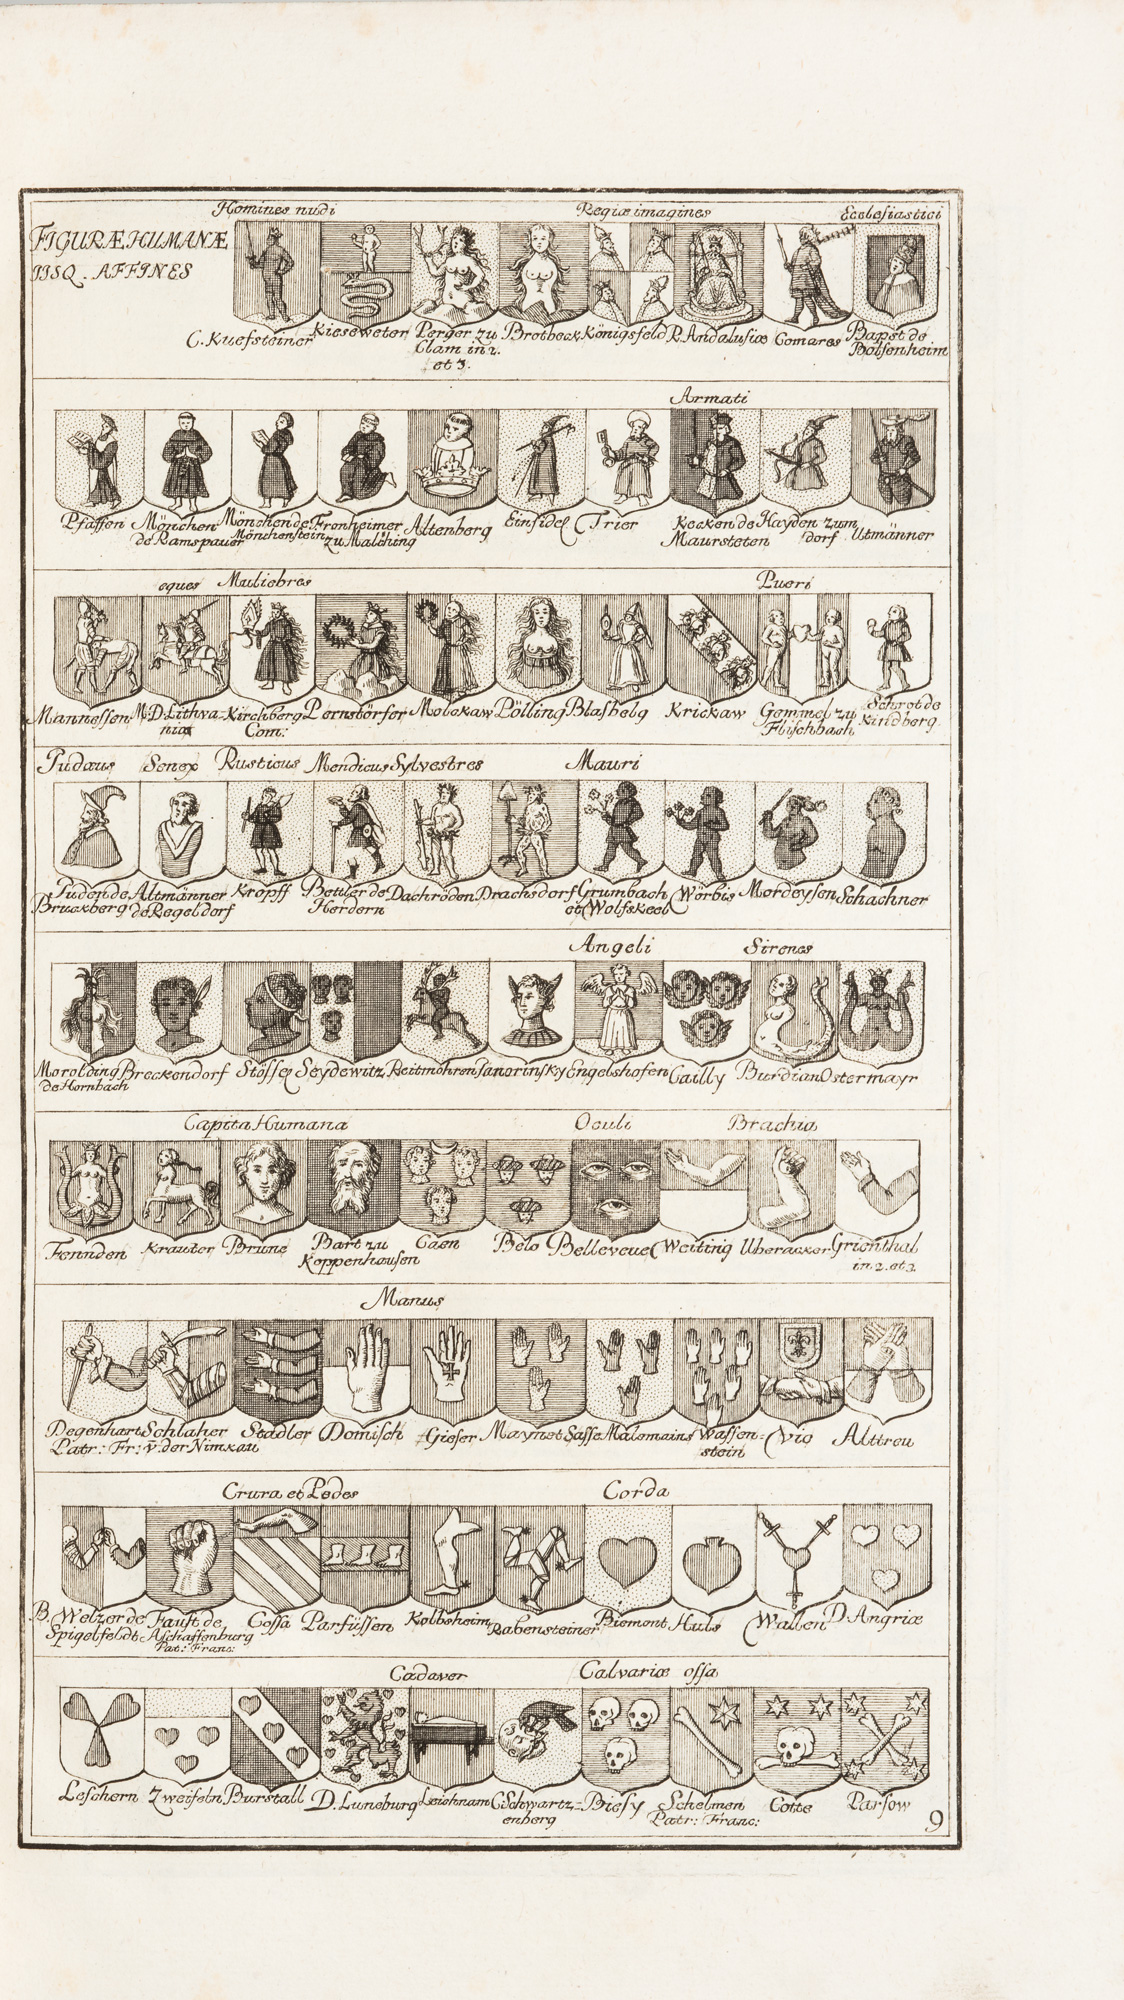 Homines nudi Regiæ imagines Ecclesiastici
FIGURÆ HUMANÆ
IISQ. AFFINES
C. Kuefsteiner Kieseweter Perger zu Brotbeck Königsfeld R. Andalusiæ Comares Bapst de
Clam in 2. Bolsenheim
et 3.
Armati
Pfaffen Mönchen Mönchen de Fronheimer Altenberg Einsidel Trier Kecken de Hayden zum Utmänner
de Ramspauer Mönchenstein zu Malching Maursteten dorf
eques Muliebres Pueri
Mannessen M.D. Lithva- Kirchberg Pernstörfer Molckaw Pölling Blasbelg Krickaw Gemmel zu Schrot de
niæ Com: Flischbach Kindberg.
Judæus Senex Rusticus Mendicus Sylvestres Mauri
Juden de Altmänner Kropff Bettler de Dachröden Drachsdorf Grumbach Wörbis Mordeysen Schachner
Bruckberg de Regeldorf Herdern et Wolfskeel
Angeli Sirenes
Morolding Breckendorf Stösser Seydewitz Reitmohren Janorinsky Engelshofen Cailly Burdian Ostermayr
de Hornbach
Capita Humana Oculi Brachia
Fenden Krauter Brune Bart zu Caen Belo Belleveue Weiting Uberacker Grienthal
Koppenhausen in 2. et 3.
Manus
Degenhart Schlaher Stadler Domisch Gieser Maynet Sasse Malemains Waffen- Vig Alttreu
Patr: Fr: v. der Nimkau stein
Crura et Pedes Corda
B. Welzer de Faust de Cossa Parfüssen Kolbsheim Rabensteiner Biemont Huls Wallen D. Angriæ
Spigelfeldt Aschaffenburg
Pat: Franc:
Cadaver Calvariæ ossa
Leschern Zweifeln Burstall D. Luneburg Leichnam C. Schwartz- Biesy Schelmen Cotte Parsow
enberg Patr: Franc:
9